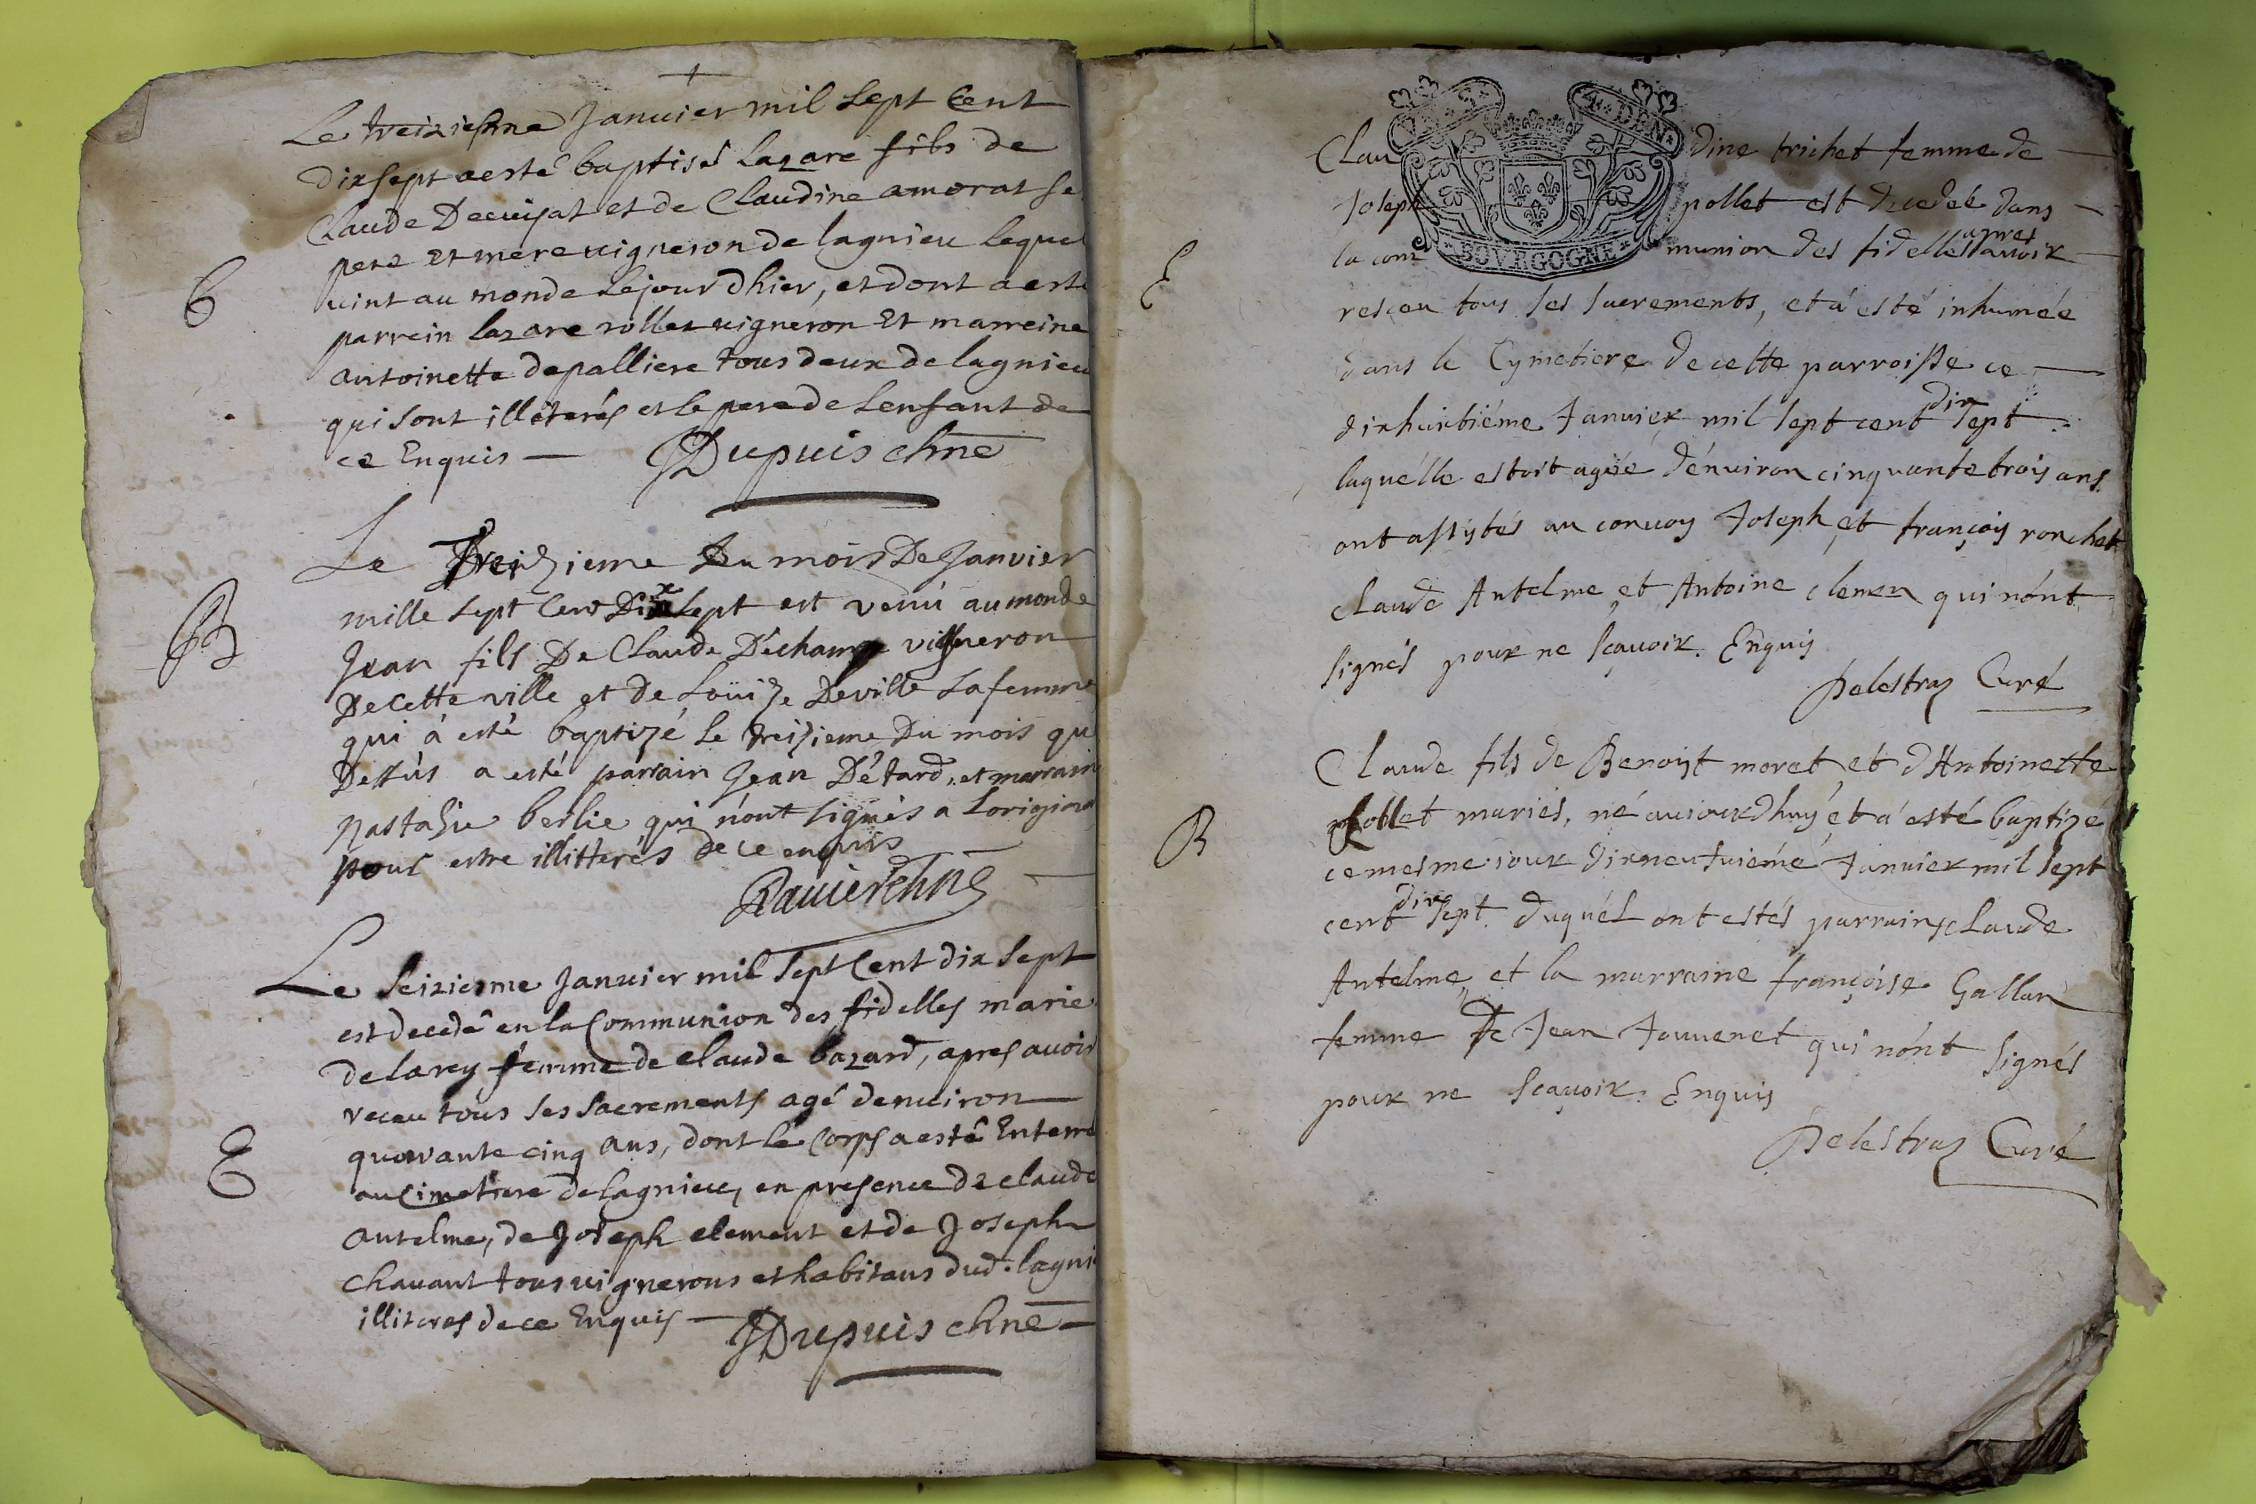 Le treiziesme Janvier mil sept Cent
dix sept a esté baptisé lazare fils de
Claude Decuisat et de Claudine amorat se
pere et mere vigneron de lagnieu lequel
vint au monde le jour d'hier, et dont a esté
B
parrein lazare rollet vigneron et marreine
antoinette depalliere tous deux de lagnieu
qui sont illiterés et le pere de lenfant de
ce Enquis — JDupuis chne
Le Treizieme Du mois De Janvier
mille sept Cent Dix sept est venu au monde
B
Jean fils De Claude Dechamp vigneron
De cette ville et de Loüize Deville sa femme
qui à esté baptizé le treizieme Du mois que
Dessus a esté parrain Jean Détard, et marrain
nastasie berlie qui n'ont signés a Loriginal
pour estre illitterés de ce enquis
Ravier chne
Le seiziesme Janvier mil sept Cent dix sept
est decedé en la Communion des fidelles marie
de larey femme de claude bazard, apres avoir
receu tous ses sacrements agé denviron
quarante cinq ans, dont le Corps a esté Enterré
E
au Cimetiere de lagnieu, en presence de claude
antelme, de Joseph clement et de Joseph
chavant tous vignerons et habitans dud. lagni
illiteres de ce Enquis — JDupuis chne —
VN S. 4 DEN
Clau dine trichet femme de
Joseph pollet est decedeé dans
la com munion des fidelles apres avoir
E
BOVRGOGNE
resceu tous ses sacrements, et a esté inhumée
dans le Cymetiere de cette parroisse ce
dixhuitiéme Janvier mil sept cent dix sept.
laquélle estoit agée dénviron cinquante trois ans.
ont assystés au convoy Joseph et françois ronchet
claude Antelme et Antoine clemen qui nónt
signés pour ne sçavoir. Enquis
Delestraz Curé
Claude fils de Benoyt morat et dAntoinette
rollet mariés, né aujourdhuy et a esté baptizé
B
ce mesme jour dixneufviémé Janvier mil sept
cent dix sept. duquél ont estés parrains claude
Antelme, et la marraine françoise Gallan
femme De Jean Jouvenet qui nónt signés
pour ne sçavoir. Enquis
Delestraz Curé